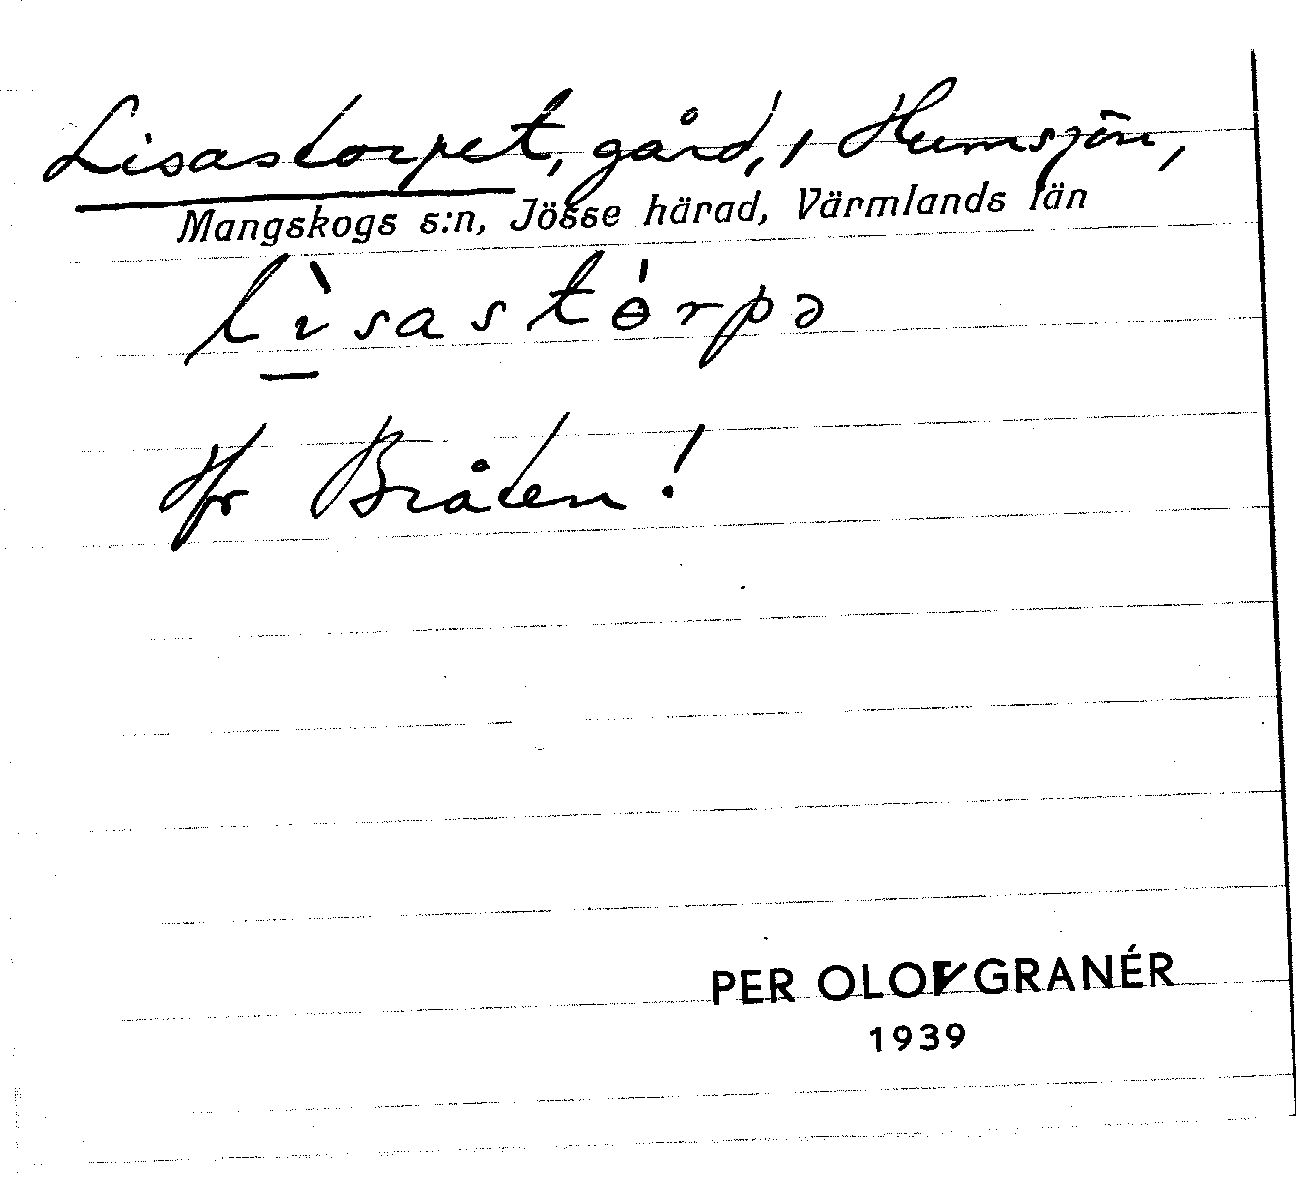 Lisastorpet, gård, i Humsjön,
Mangskogs s:n, Jösse härad, Värmlands län
lìsastɵ́rpə
Hfr Bråten!
PER OLOV GRANÉR
1939